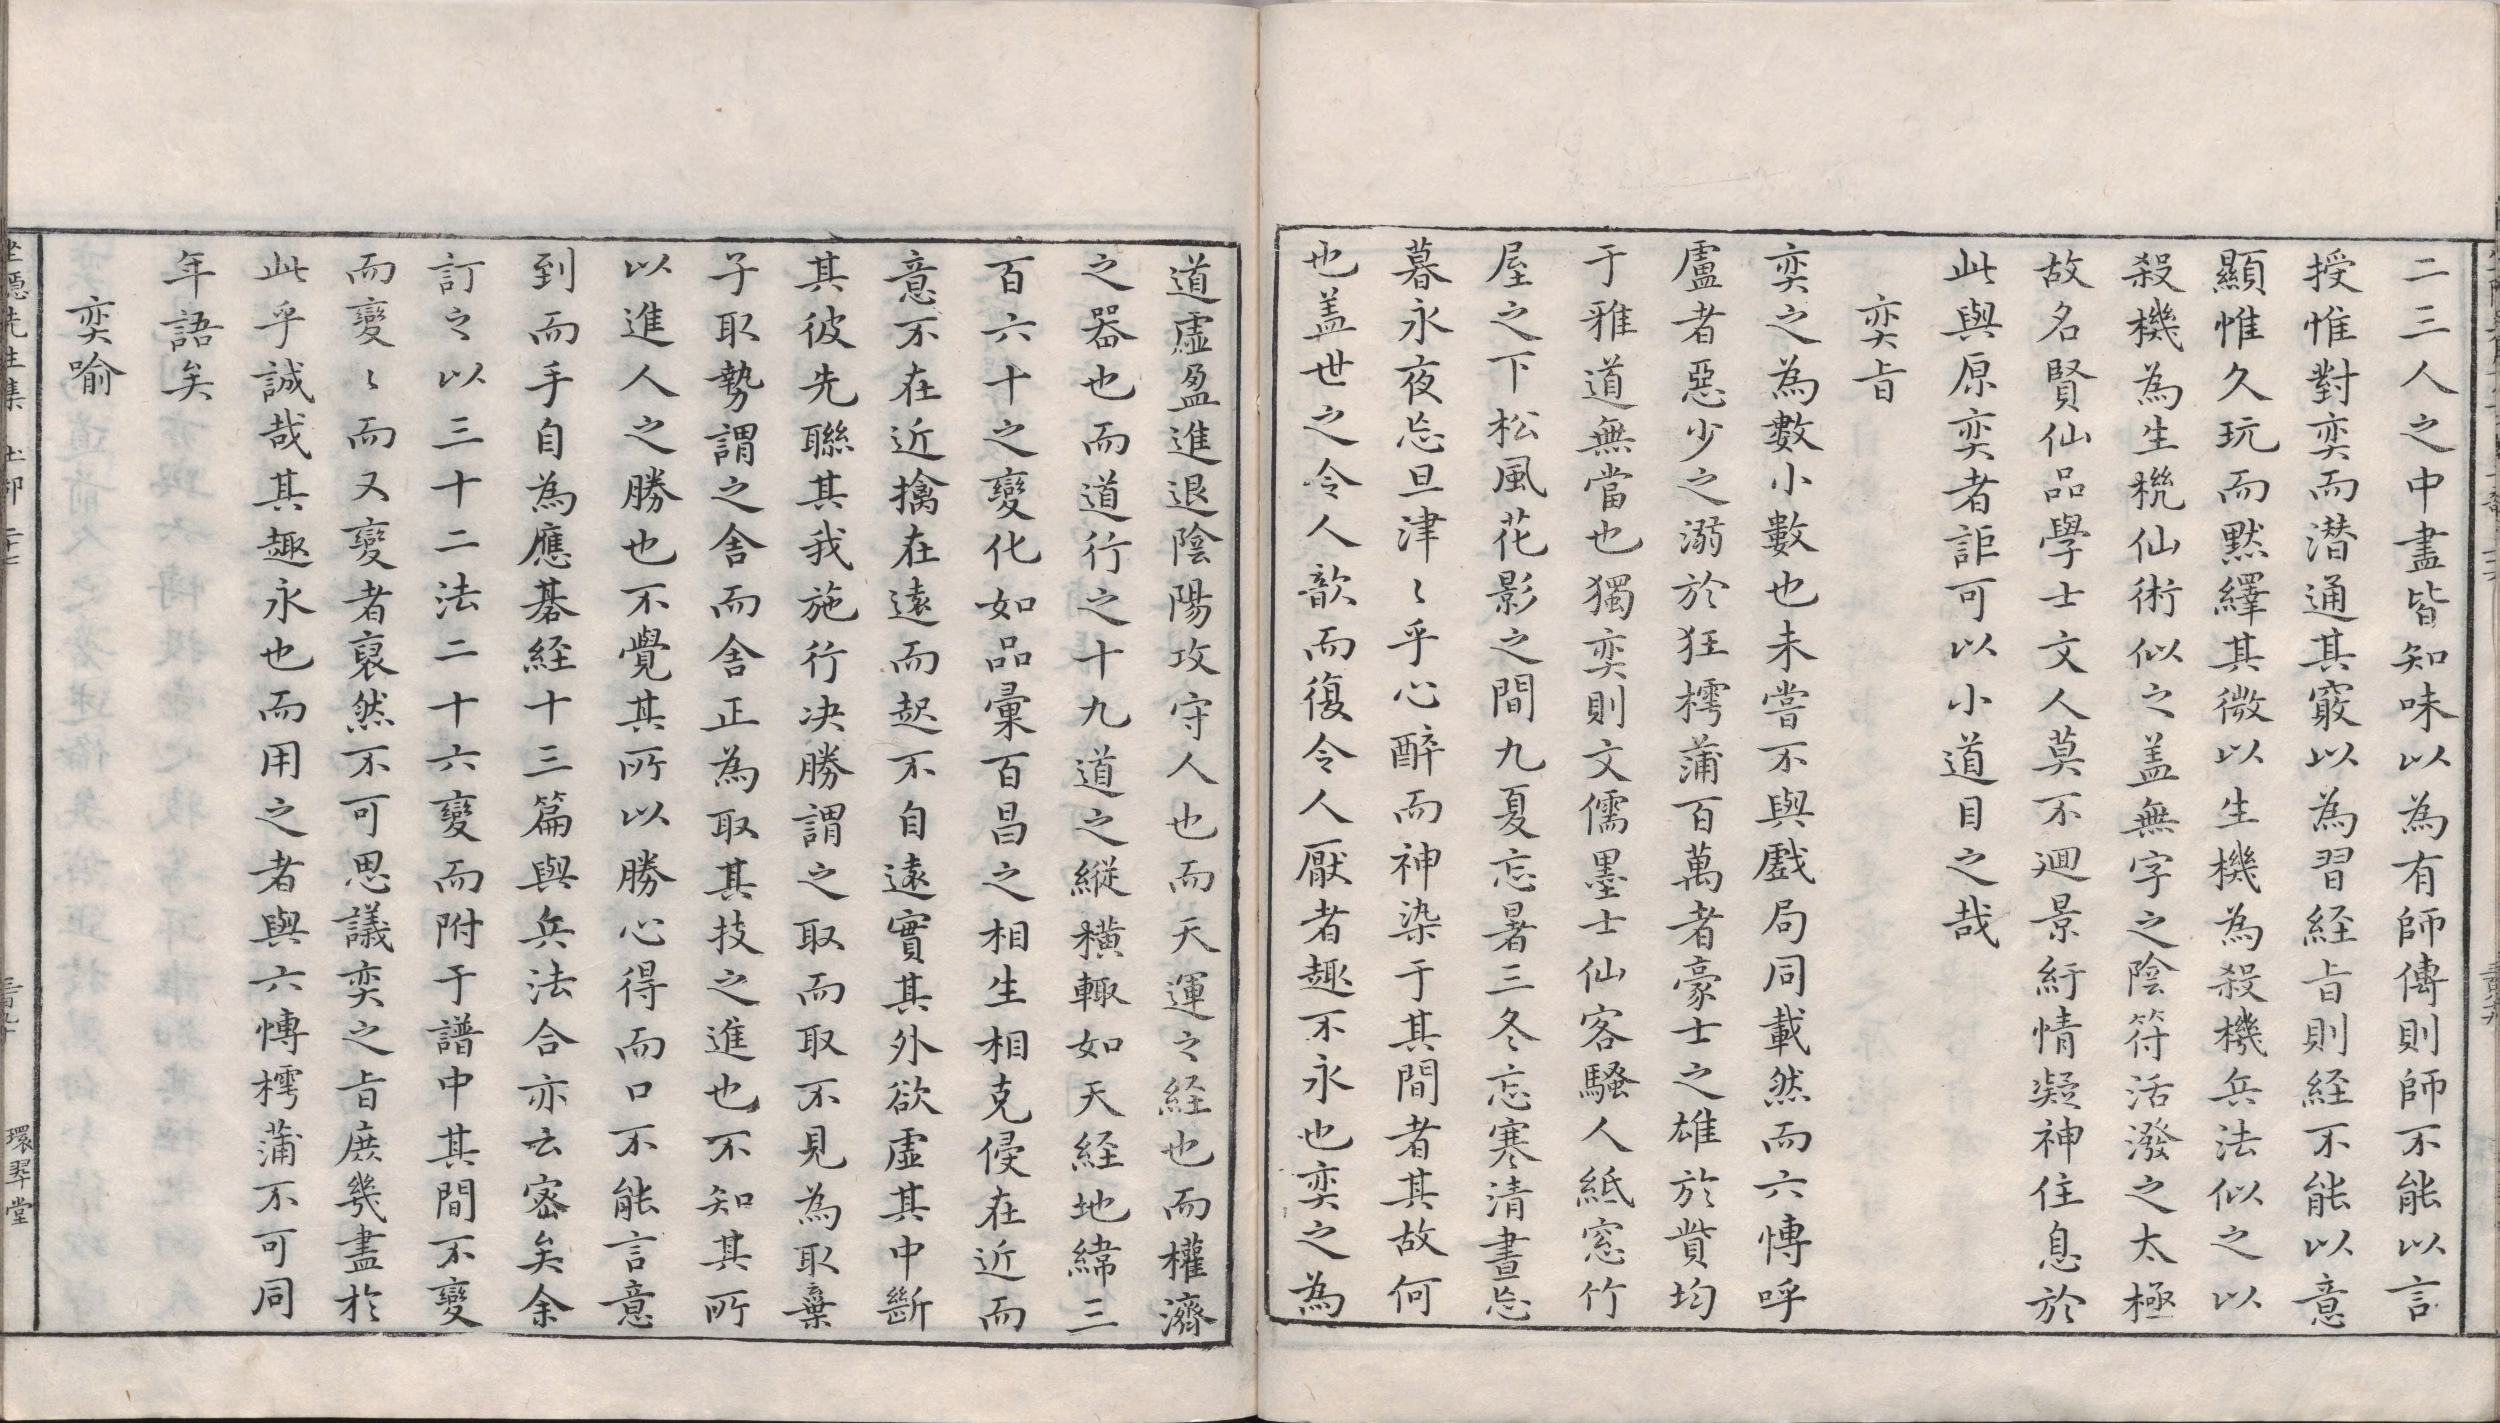 二三人之中盡皆知味以為有師傳則師不能以言
授惟對奕而潜通其竅以為習経旨則経不能以意
顯惟久玩而默繹其微以生機為殺機兵法似之以
殺機為生機仙術似之盖無字之陰符活潑之太極
故名賢仙品學士文人莫不迴景紆情凝神住息於
此與原奕者詎可以小道目之哉
奕旨
奕之為數小數也未嘗不與戲局同載然而六愽呼
盧者惡少之溺於狂樗蒲百萬者豪士之雄於貲均
于雅道無當也獨奕則文儒墨士仙客騷人紙窓竹
屋之下松風花影之間九夏忘暑三冬忘寒清晝忘
暮永夜忘旦津〻乎心醉而神染于其間者其故何
也盖世之令人歆而復令人厭者趣不永也奕之為
道虛盈進退陰陽攻守人也而天運之経也而權濟
之器也而道行之十九道之縱横輙如天経地緯三
百六十之變化如品彙百昌之相生相克侵在近而
意不在近擒在遠而起不自遠實其外欲虛其中斷
其彼先聯其我施行决勝謂之取而取不見為取棄
子取勢謂之舍而舍正為取其技之進也不知其所
以進人之勝也不覺其所以勝心得而口不能言意
到而手自為應碁経十三篇與兵法合亦云宻矣余
訂之以三十二法二十六變而附于譜中其間不變
而變〻而又變者裒然不可思議奕之旨庶幾盡於
此乎誠哉其趣永也而用之者與六愽樗蒲不可同
年語矣
奕喻
坐隱先生集 土部 三十七
環翠堂